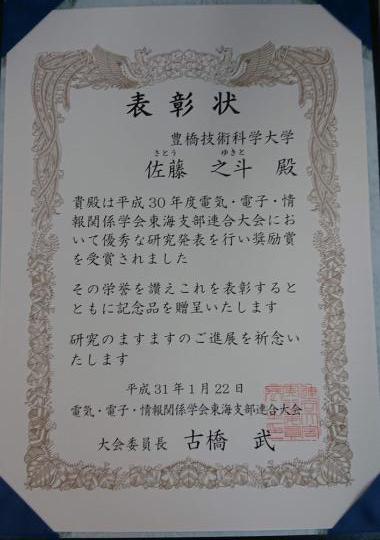 表彰状
豊橋技術科学大学
さとう ゆきと
佐藤 之斗 殿
貴殿は平成30年度電気・電子・情
報関係学会東海支部連合大会にお
いて優秀な研究発表を行い奨励賞
を受賞されました
その栄誉を讃えこれを表彰すると
ともに記念品を贈呈いたします
研究のますますのご進展を祈念い
たします
平成31年1月22日
電気・電子・情報関係学会東海支部連合大会
大会委員長 古橋 武